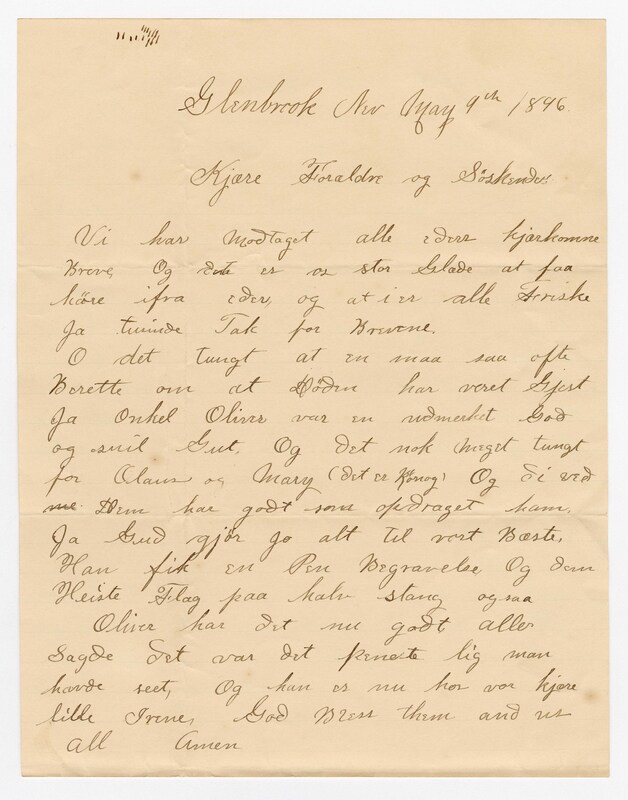 Glenbrook Nev May 9th 1896.
Kjære Foraldre og Söskende:
Vi har Modtaget alle eders kjærkomne
Breve, Og det er os stor Glæde at faa
höre ifra eder, og at i er alle Friske
Ja tusinde Tak for Brevene.
O det tungt at en maa saa ofte
Berette om at Döden har veret Gjest
Ja Onkel Oliver var en udmerket God
og snil Gut. Og det nok meget tungt
for Claus og Mary (det er Konog) Og di ved
Dem har godt som opdraget ham.
Ja Gud gjör jo alt til vort Bæste,
Han fik en Pen Begravelse Og dem
Heiste Flag paa halv stang ogsaa
Oliver har det nu godt alle
Sagde det var det peneste lig man
havde seet, Og han er nu hos vor kjære
lille Irene, God Bless them and us
All Amen